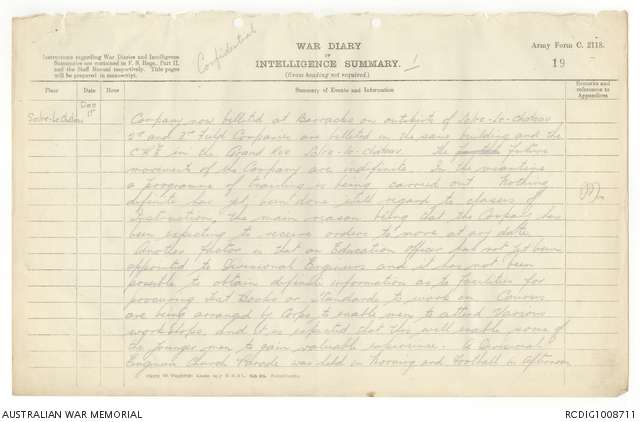 Confidential
WAR DIARY
or
INTELLIGENCE SUMMARY.
(Erase heading not required.)
Army Form C. 2118.
19
Instructions regarding War Diaries and Intelligence
Summaries are contained in F. S. Regs., Part II.
and the Staff Manual respectively. Title pages
will be prepared in manuscript.
Place Date Hour Summary of Events and Information Remarks and references to Appendices
Dec
Company now billeted at Barracks on outskirts of
and 2nd Field Companies are billeted in the same building and the
C.R.E. in the Grand Rue The future
movements of the Company are indefinite. In the meantime
a programme of training is being carried out. Nothing
definite has yet been done with regard to classes of
Instruction, the main reason being that the Company has
been expecting to receive orders to move at any date.
Another factor is that an Education officer has not yet been
appointed to Divisional Engineers and it has not been
possible to obtain definite information as to facilities for
procuring Text Books or Standards to work on. Courses
are being arranged by Corps to enable men to attend various
workshops and it is expected that this will enable some of
the younger men to gain valuable experience. A Divisional
Engineer Church Parade was held in Morning and Football in Afternoon
AUSTRALIAN WAR MEMORIAL
RCDIG1008711